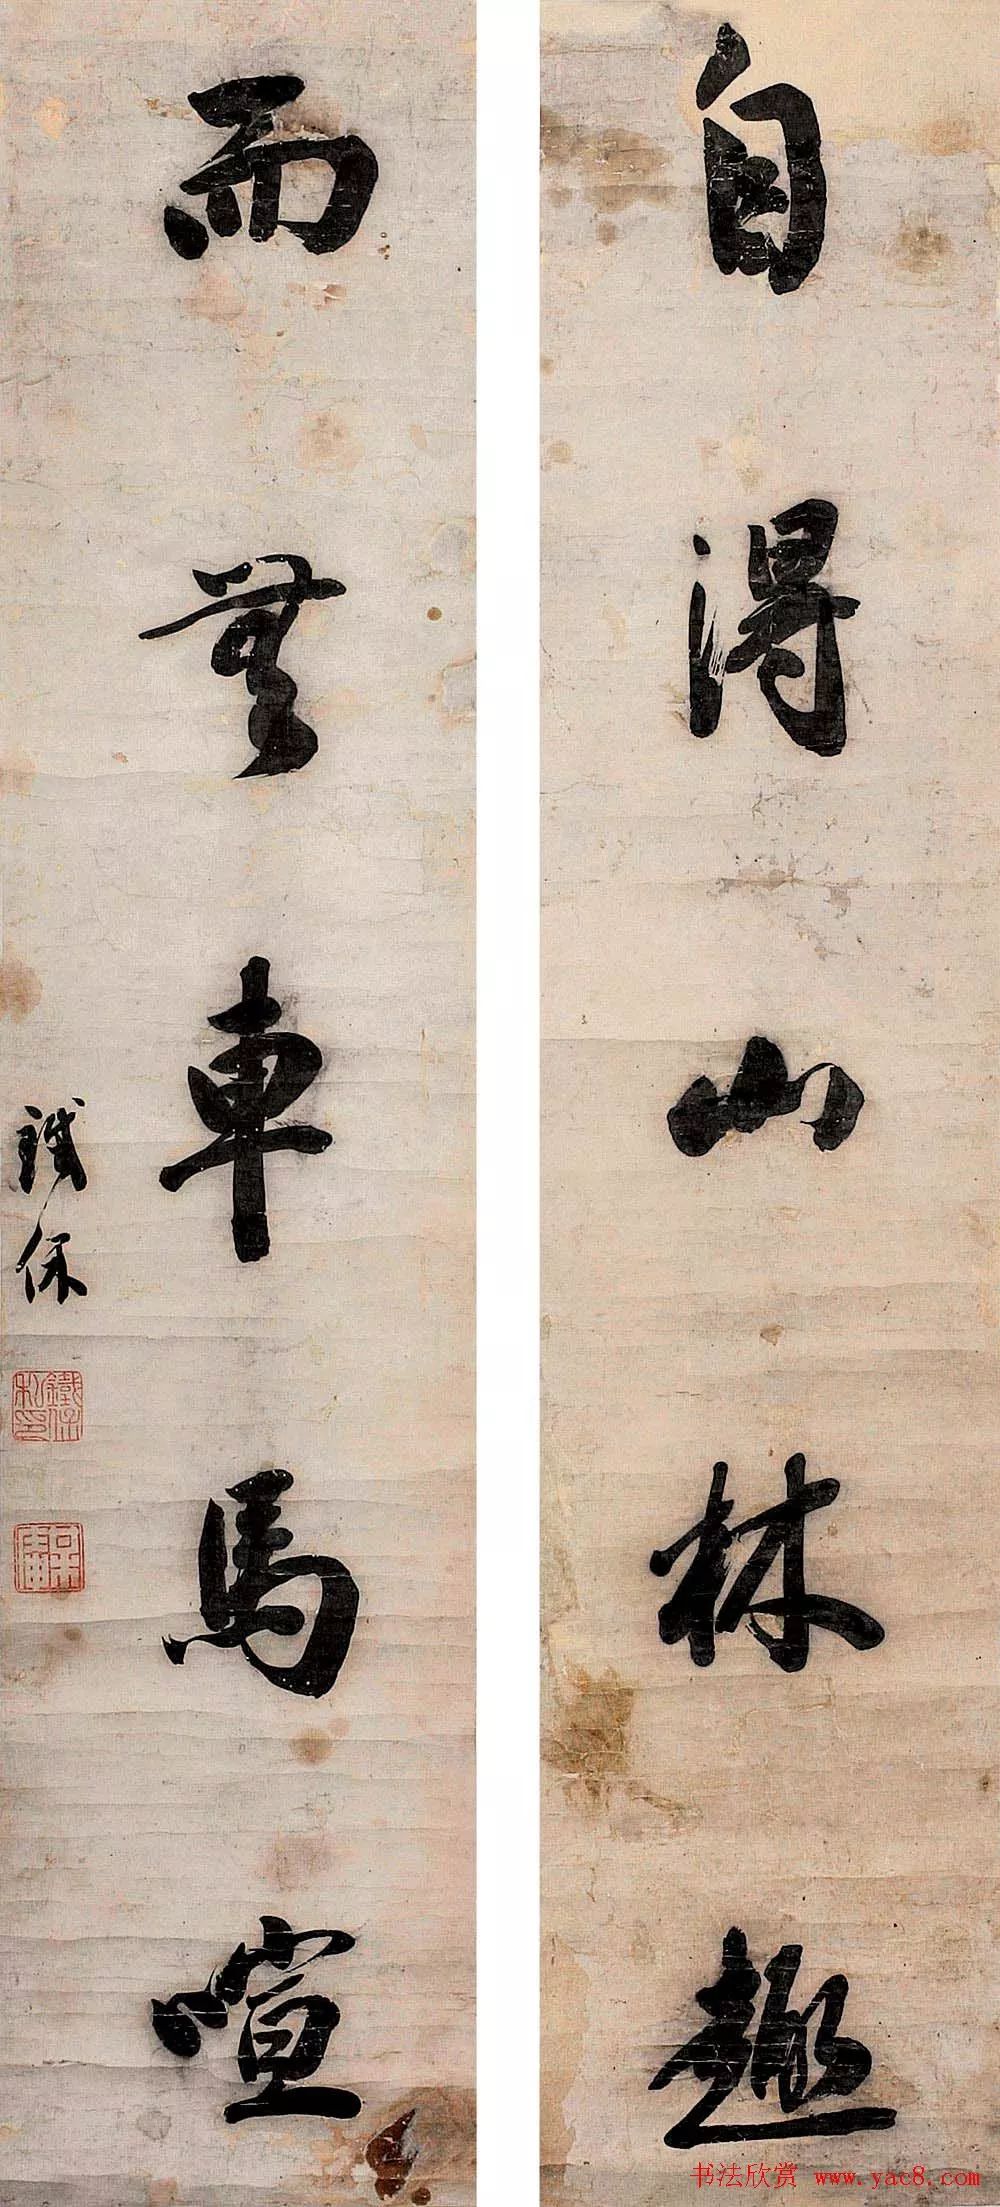 自得山林趣
而無車馬喧
鐵保
鐵保私印
書法欣赏 www.yac8.com